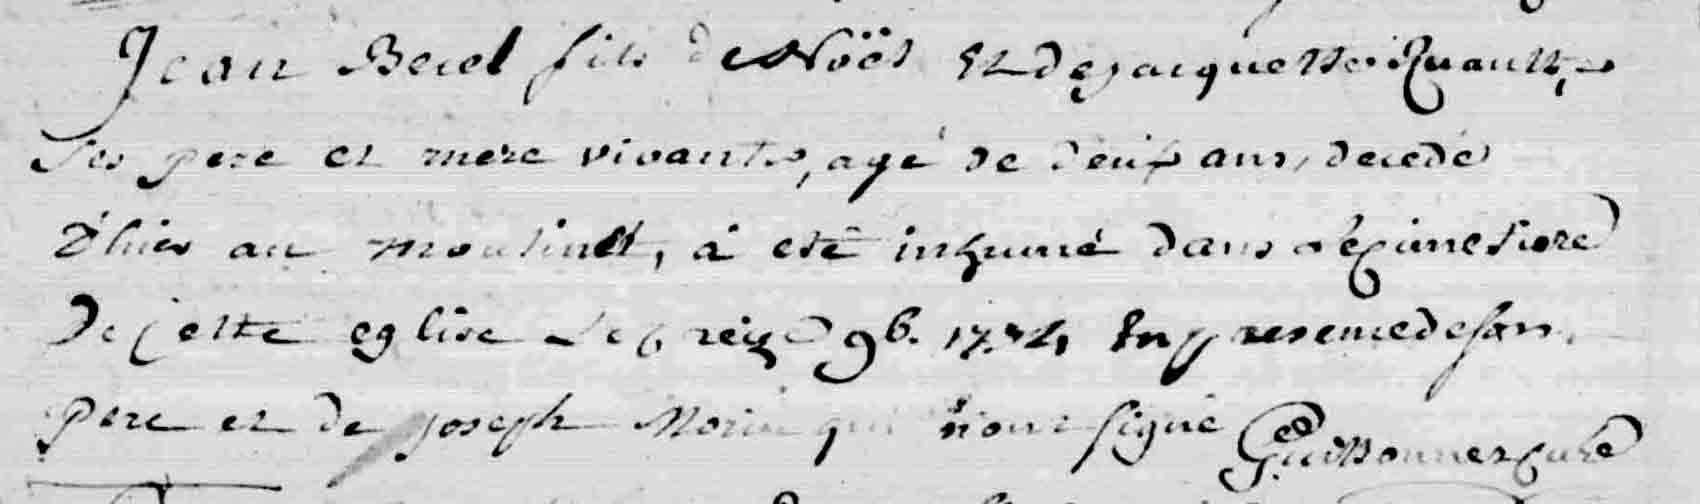 Jean Berel fils de Noël Et de jacquette Ruault,
Ses pere et mere vivants, agé de deux ans, decedé
d'hier au moulinet, a eté inhumé dans le cimetiere
De cette eglise Le treize 9b. 1774 En presence de son
pere et de joseph Morin qui n'ont signé Guissonner curé